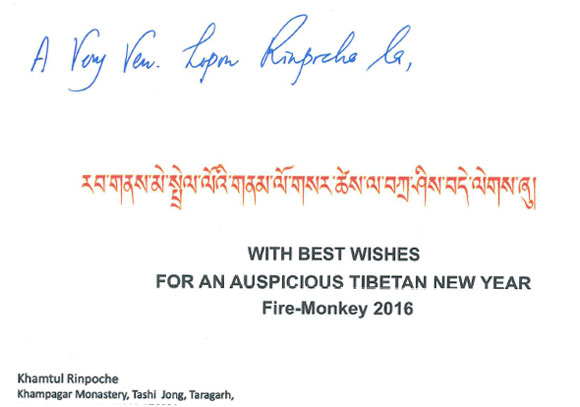 A Very Ven. Lopon Rinpoche la,
རབ་གནས་མེ་སྤྲེལ་ལོའི་གནམ་ལོ་གསར་ཚེས་ལ་བཀྲ་ཤིས་བདེ་ལེགས་ཞུ།
WITH BEST WISHES
FOR AN AUSPICIOUS TIBETAN NEW YEAR
Fire-Monkey 2016
Khamtul Rinpoche
Khampagar Monastery, Tashi Jong, Taragarh,